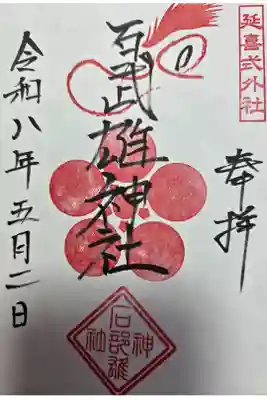 延喜式外社
奉拝
石武雄神社
令和八年五月二日
神
石部雄
社